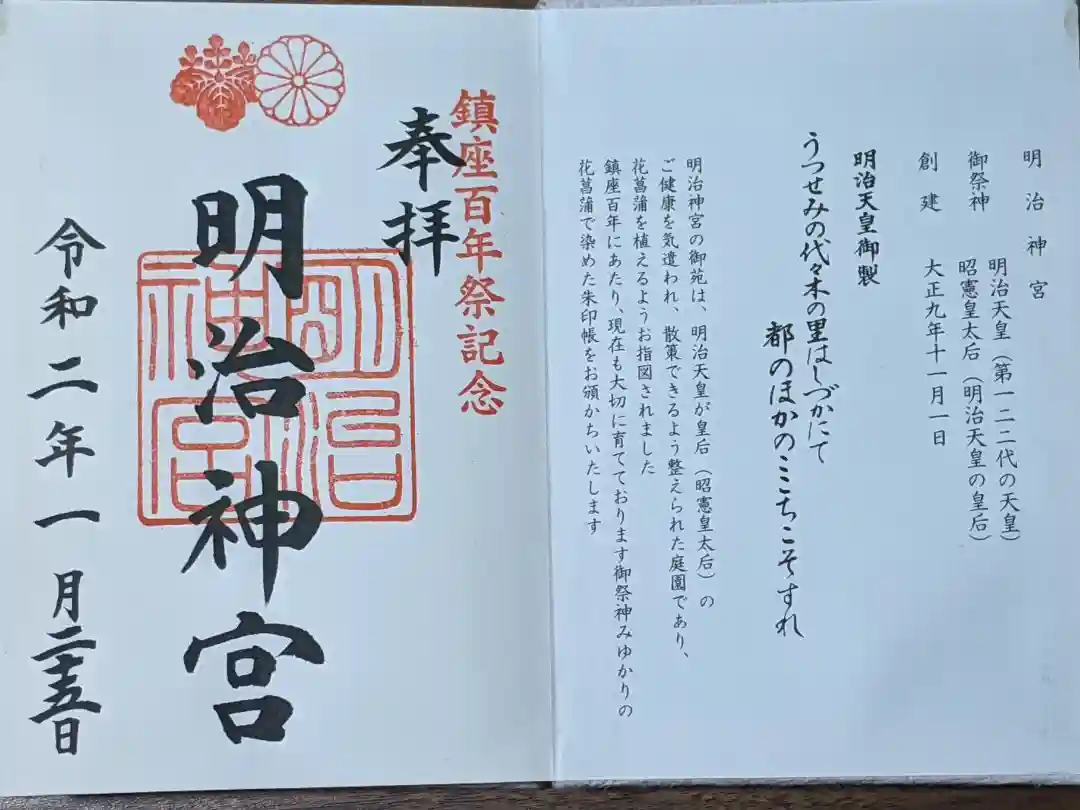 明治神宮
御祭神 明治天皇(第一二二代の天皇)
昭憲皇太后(明治天皇の皇后)
創建 大正九年十一月一日
明治天皇御製
うつせみの代々木の里はしづかにて
都のほかのこゝちこそすれ
明治神宮の御苑は、明治天皇が皇后(昭憲皇太后)の
ご健康を気遣われ、散策できるよう整えられた庭園であり、
花菖蒲を植えるようお指図されました
鎮座百年にあたり、現在も大切に育てております御祭神みゆかりの
花菖蒲で染めた朱印帳をお頒かちいたします
鎮座百年祭記念
奉拝
明治神宮
明治神宮
令和二年一月二十五日